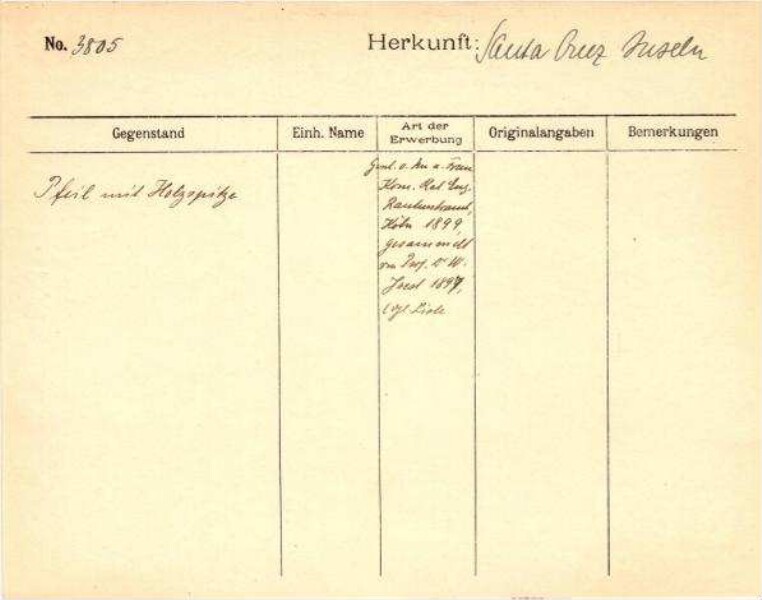 No. 3805 Herkunft: Santa Cruz Inseln
Gegenstand Einh. Name Art der Erwerbung Originalangaben Bemerkungen
Pfeil mit Holzspitze
Gesch. v. Hn u. Frau
Kom. Rat Eug.
Rautenstrauch,
Köln 1899,
gesammelt
von Prof. Dr W.
Joest 1897,
(vgl. Liste